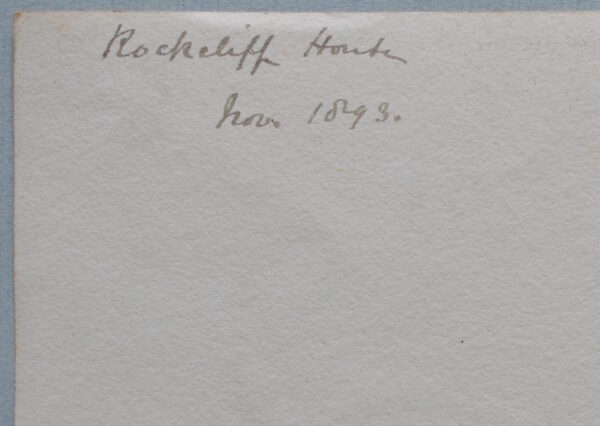 Rockcliff House
Nov. 1893.